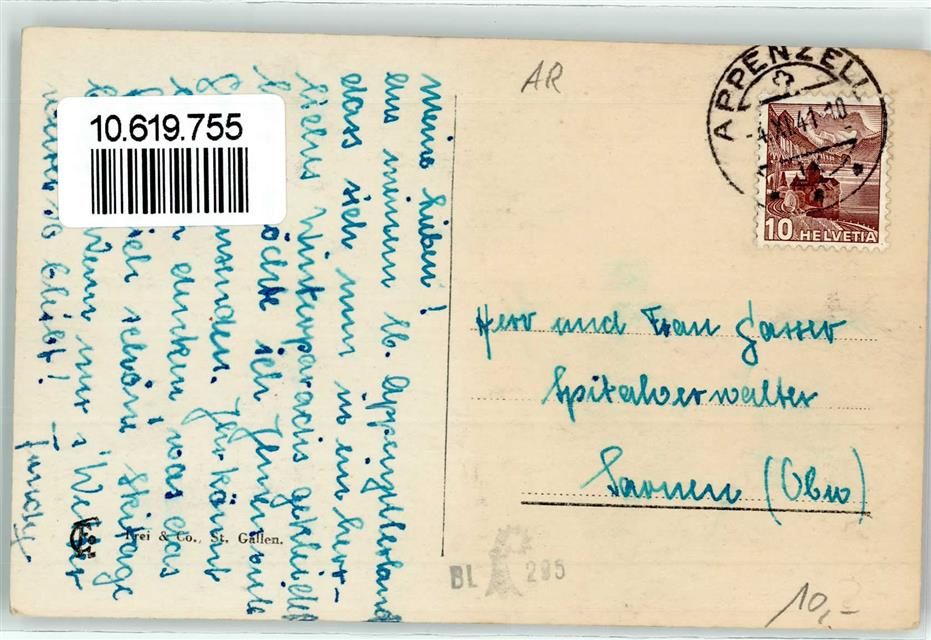 10.619.755
Meine Lieben!
Aus meinem lb. Appenzellerland
dass sich nun in ein herr-
liches Winterparadis gekleidet
möchte ich
senden. Ihr könnt
denken was das
schöne Skitage
Wenn nur s'Wetter
so bleibt!
Frei & Co., St. Gallen.
AR
APPENZELL
-4.XI.41-10
10 HELVETIA
Herr und Frau Gasser
Spitalverwalter
Sarnen (Obw)
BL 295
10,-